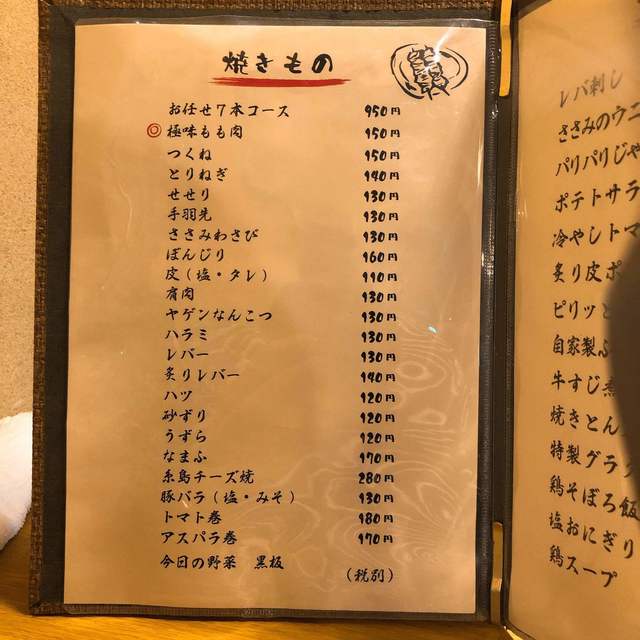 焼きもの
お任せ7本コース 950円
◎極味もも肉 150円
つくね 150円
とりねぎ 140円
せせり 130円
手羽先 130円
ささみわさび 130円
ぼんじり 160円
皮(塩・タレ) 110円
肩肉 130円
ヤゲンなんこつ 130円
ハラミ 130円
レバー 130円
炙りレバー 140円
ハツ 120円
砂ずり 120円
うずら 120円
なまふ 170円
糸島チーズ焼 280円
豚バラ(塩・みそ) 130円
トマト巻 180円
アスパラ巻 170円
今日の野菜 黒板
(税別)
レバ刺し
ささみのウニ
パリパリじゃ
ポテトサラ
冷やしトマ
炙り皮ポ
ピリッと
自家製ふ
牛すじ煮
焼きとん
特製グラ
鶏そぼろ飯
塩おにぎり
鶏スープ